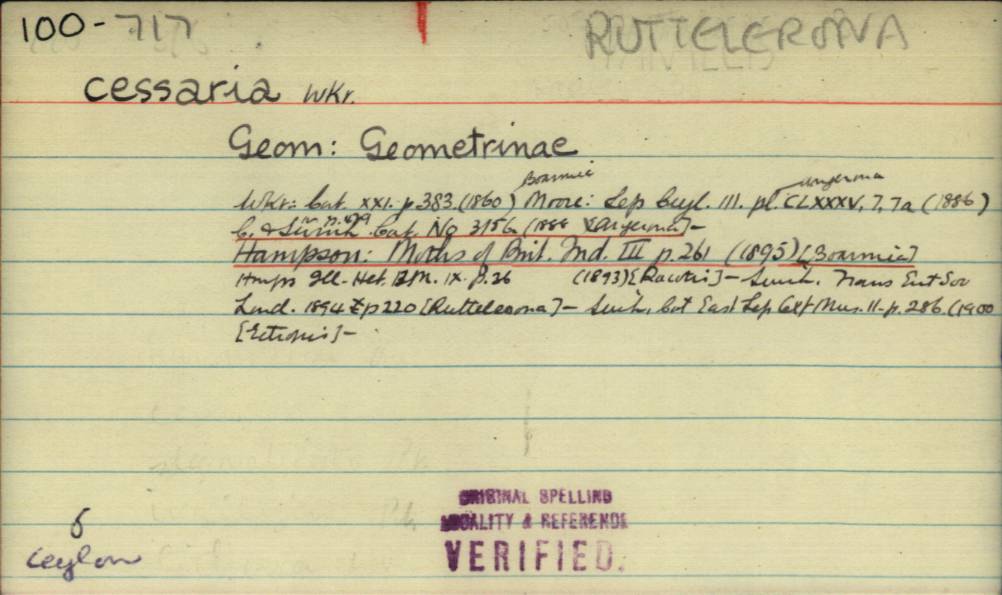 100-717
RUTTELERONA
cessaria Wkr.
Geom: Geometrinae
Boarmia
Angerona
Wkr: Cat. XXI. p 383. (1860) Moore: Lep Ceyl. III. pl. CLXXXV, 7, 7a (1886)
C. & Swinh. Cat. No 3156 (1888 [Angerona]-
Hampson: Moths of Brit. Ind. III p. 261 (1895) [Boarmia]
Hmps Ill. Het. B.M. IX. p. 26 (1893) [Racotis] - Swinh. Trans Ent Soc
Lond. 1894 p 220 [Ruttelerona] - Swinh. Cat East Lep Oxf Mus. II - p. 286. (1900
[Ectropis] -
ORIGINAL SPELLING
LOCALITY & REFERENCE
VERIFIED.
6
Ceylon